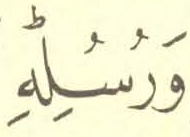 وَرُسُلِهٖ